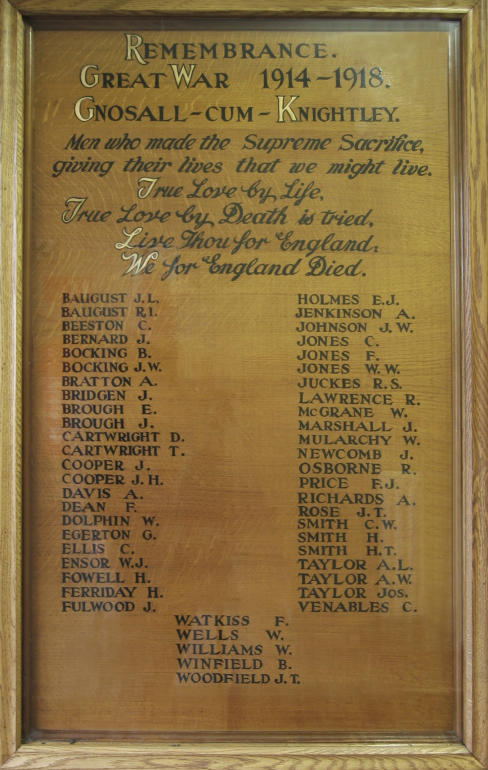 REMEMBRANCE.
GREAT WAR 1914-1918.
GNOSALL-CUM-KNIGHTLEY.
Men who made the Supreme Sacrifice,
giving their lives that we might live.
True Love by Life,
True Love by Death is tried,
Live Thou for England;
We for England Died.
BAUGUST J.L.
BAUGUST R.I.
BEESTON C.
BERNARD J.
BOCKING B.
BOCKING J.W.
BRATTON A.
BRIDGEN J.
BROUGH E.
BROUGH J.
CARTWRIGHT D.
CARTWRIGHT T.
COOPER J.
COOPER J.H.
DAVIS A.
DEAN F.
DOLPHIN W.
EGERTON G.
ELLIS C.
ENSOR W.J.
FOWELL H.
FERRIDAY H.
FULWOOD J.
HOLMES E.J.
JENKINSON A.
JOHNSON J.W.
JONES C.
JONES F.
JONES W.W.
JUCKES R.S.
LAWRENCE R.
McGRANE W.
MARSHALL J.
MULARCHY W.
NEWCOMB J.
OSBORNE R.
PRICE F.J.
RICHARDS A.
ROSE J.T.
SMITH C.W.
SMITH H.
SMITH H.T.
TAYLOR A.L.
TAYLOR A.W.
TAYLOR Jos.
VENABLES C.
WATKISS F.
WELLS W.
WILLIAMS W.
WINFIELD B.
WOODFIELD J.T.